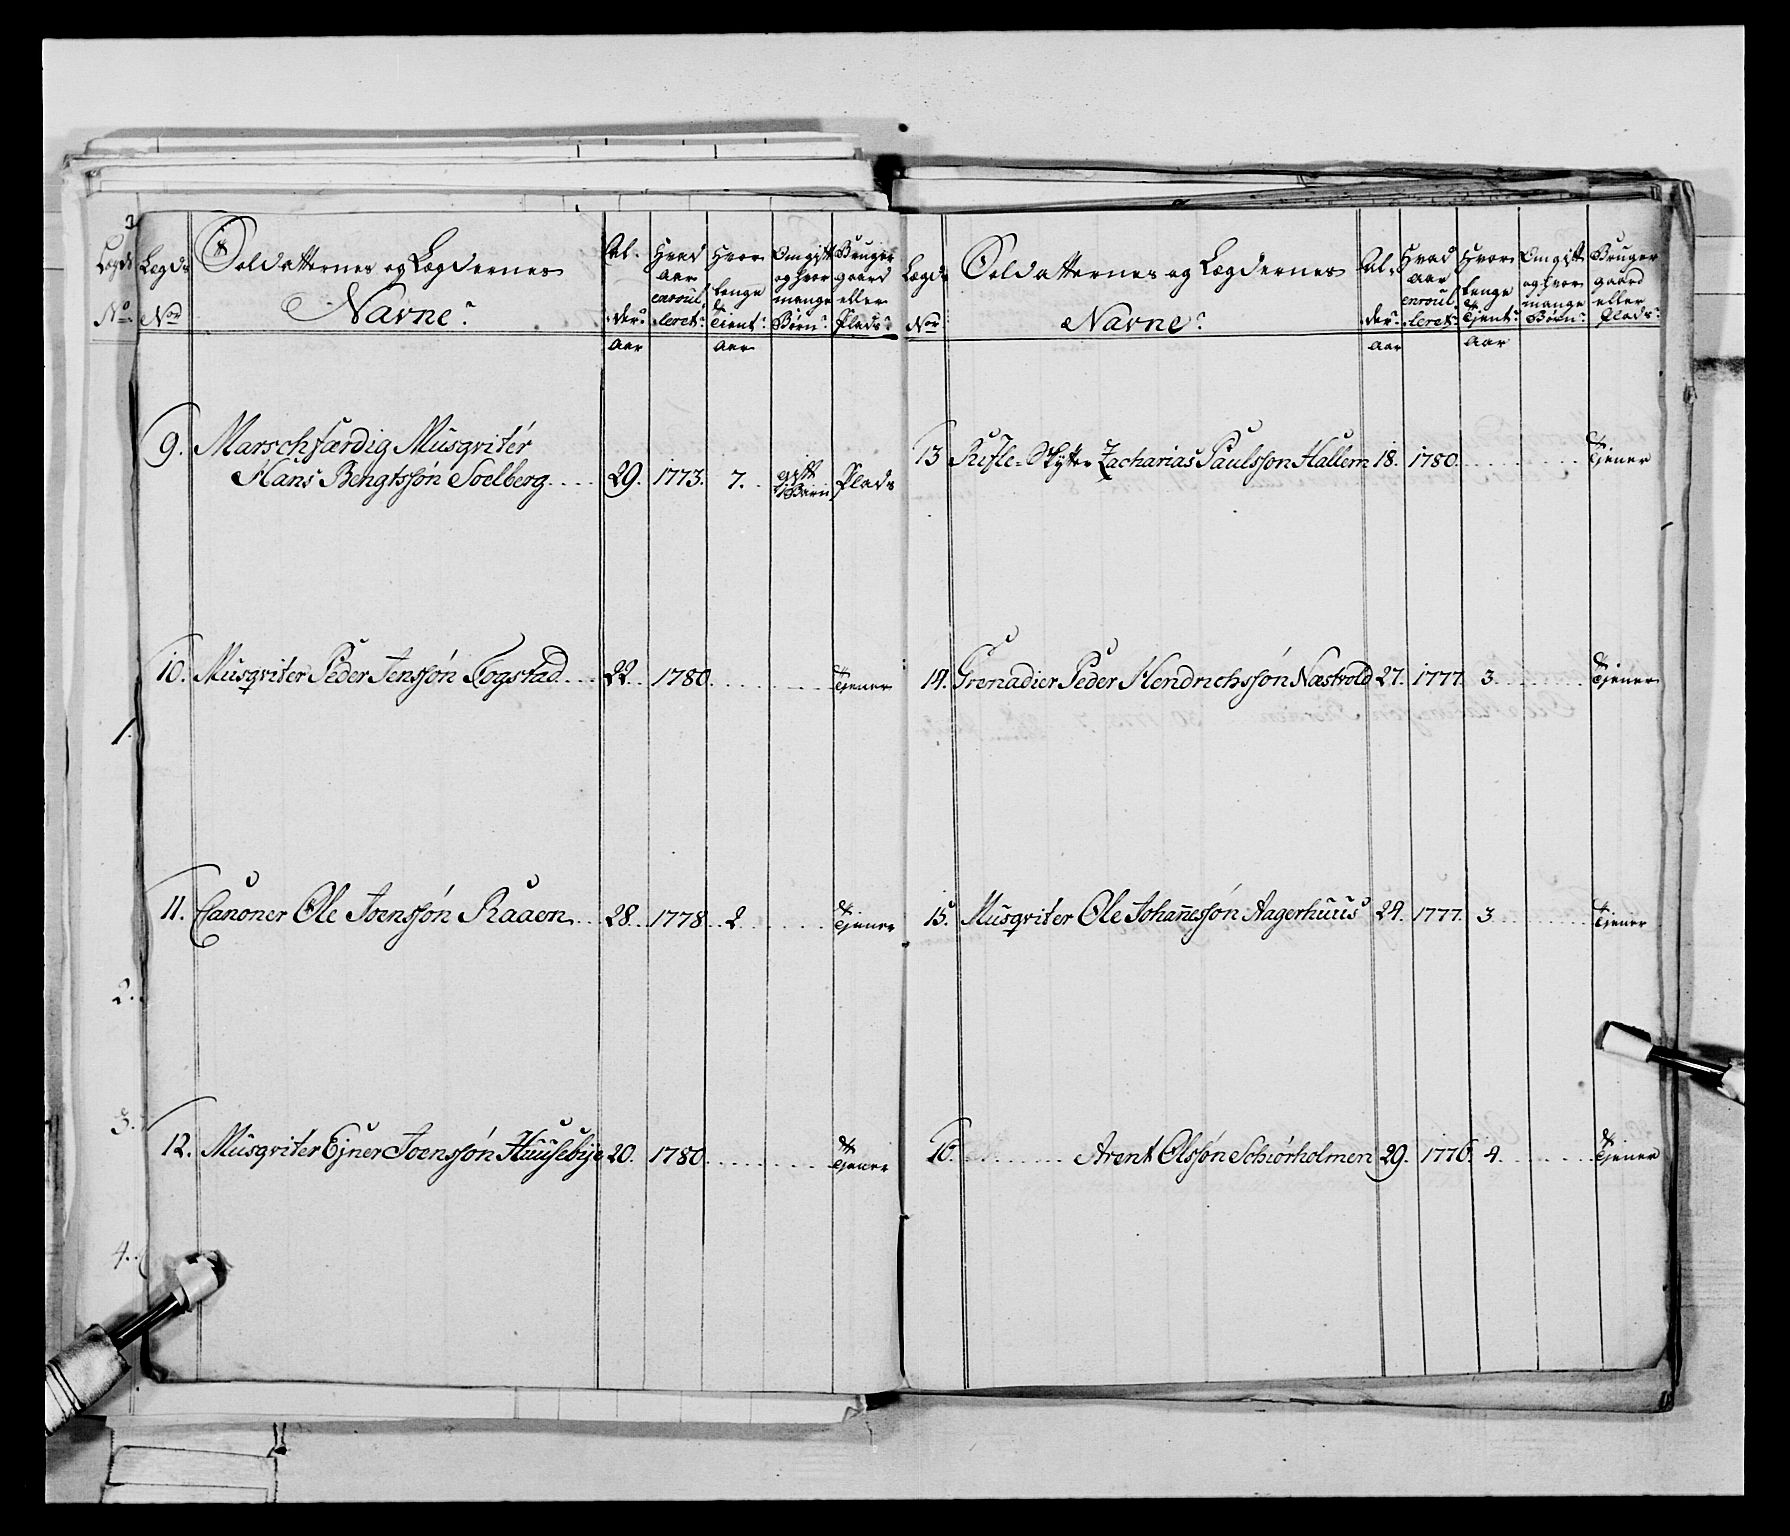 Legds Nor
Soldatternes og Lægdernes Navne
Al- der Aar
Hvad Aar enroulleret
Hvor lenge Tient Aar
Om gift og hvor mange Børn
Bruger gaard eller Plads
9. Marschfærdig Musqvitér
Hans Bengtssøn Soelberg 29. 1773. 7. gift 1 Barn Plads
10. Musqviter Peder Jenssøn Fogstad 22 1780. Tjener
11. Canoner Ole Joenssøn Raaen 28. 1778. 2. Tjener
12. Musqviter Ejner Joenssøn Huusebye 20. 1780. Tjener
Legds Nor
Soldatternes og Lægdernes Navne
Al- der Aar
Hvad Aar enroulleret
Hvor lenge Tjent Aar
Om gift og hvor mange Børn
Bruger gaard eller Plads
13 Rifle-Skytter Zacharias Paulssøn Hallem 18. 1780. Tjener
14. Grenadier Peder Hendrichssøn Næstvold 27. 1777. 3. Tjener
15. Musqviter Ole Johanessøn Aagerhuus 24. 1777. 3. Tjener
16. Arent Olssøn Schiørholmen 29. 1776. 4. Tjener
Legds No
1.
2.
3.
4.